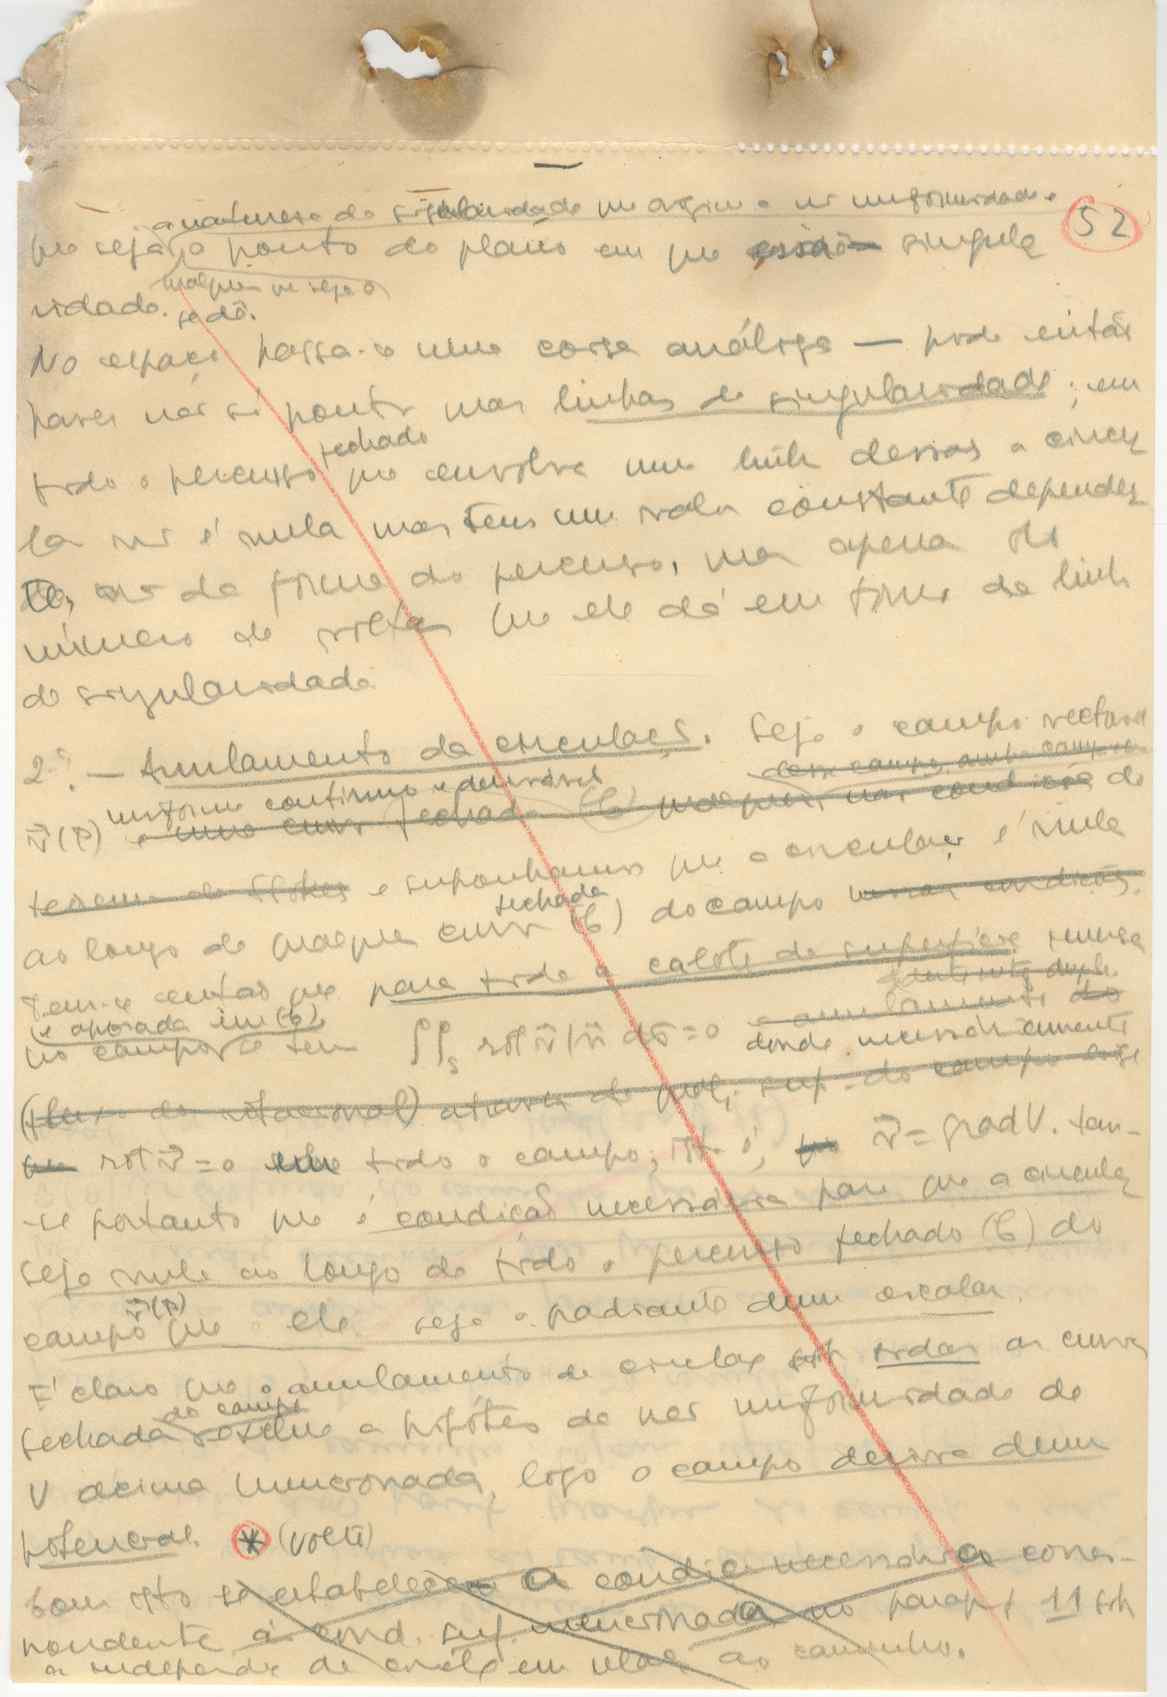 a natureza da singularidade na origem e a não uniformidade
52
que seja o ponto do plano em que singula
qualquer que seja o
ridade. se dê.
No espaço passa-se uma coisa análoga — pode então
haver não só pontos mas linhas de singularidade; em
fechado
todo o percurso que envolva uma linha dessas a circu
lação não é nula mas tem um valor constante depende
te, não da forma do percurso, mas apenas do
número de voltas que ele dá em torno da linha
de singularidade.
2º. — Anulamento da circulação. Seja o campo vectorial
uniforme contínuo e derivável
desse campo,
v(P) e uma curva fechada (C) qualquer nas condições do
teorema de Stokes e suponhamos que a circulação é nula
fechada
ao longo de qualquer curva (C) do campo nessas condições.
Tem-se então que para toda a calote de superfície imersa
e apoiada em (C)
no campo se tem ∬s rot v|n dσ=0 e anulamento do
donde necessariamente
(fluxo do rotacional) através de qualq. sup. do campo logo
que rot v=0 em todo o campo, isto é, que v = grad V. tem-
-se portanto que é condição necessária para que a circulação
seja nula ao longo de todo o percurso fechado (C) do
v(P)
campo que ele seja o gradiente dum escalar.
É claro que o anulamento da circulação sobre todas as curvas
do campo
fechadas exclue a hipótese da não uniformidade de
V acima mencionada, logo o campo deriva dum
potencial. * (volte)
Com isto se estabelece a condição necessária corres-
pondente à cond. suf. mencionada no parágr. 11 sobre
a independência de em relação ao caminho.